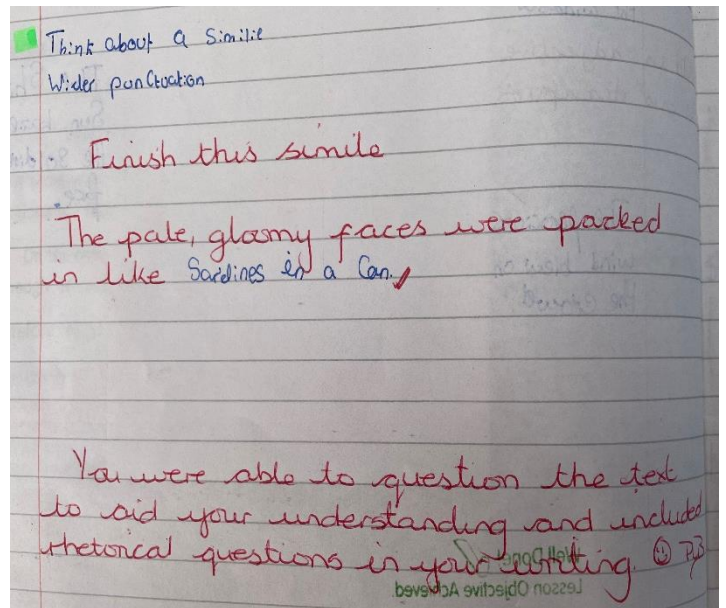 Think about a Similie
Wider punctuation
Finish this simile
The pale, gloomy faces were packed
in like Sardines in a Can.
You were able to question the text
to aid your understanding and included
rhetorical questions in your writing. ☺ PB
Well Done
Lesson Objective Achieved.